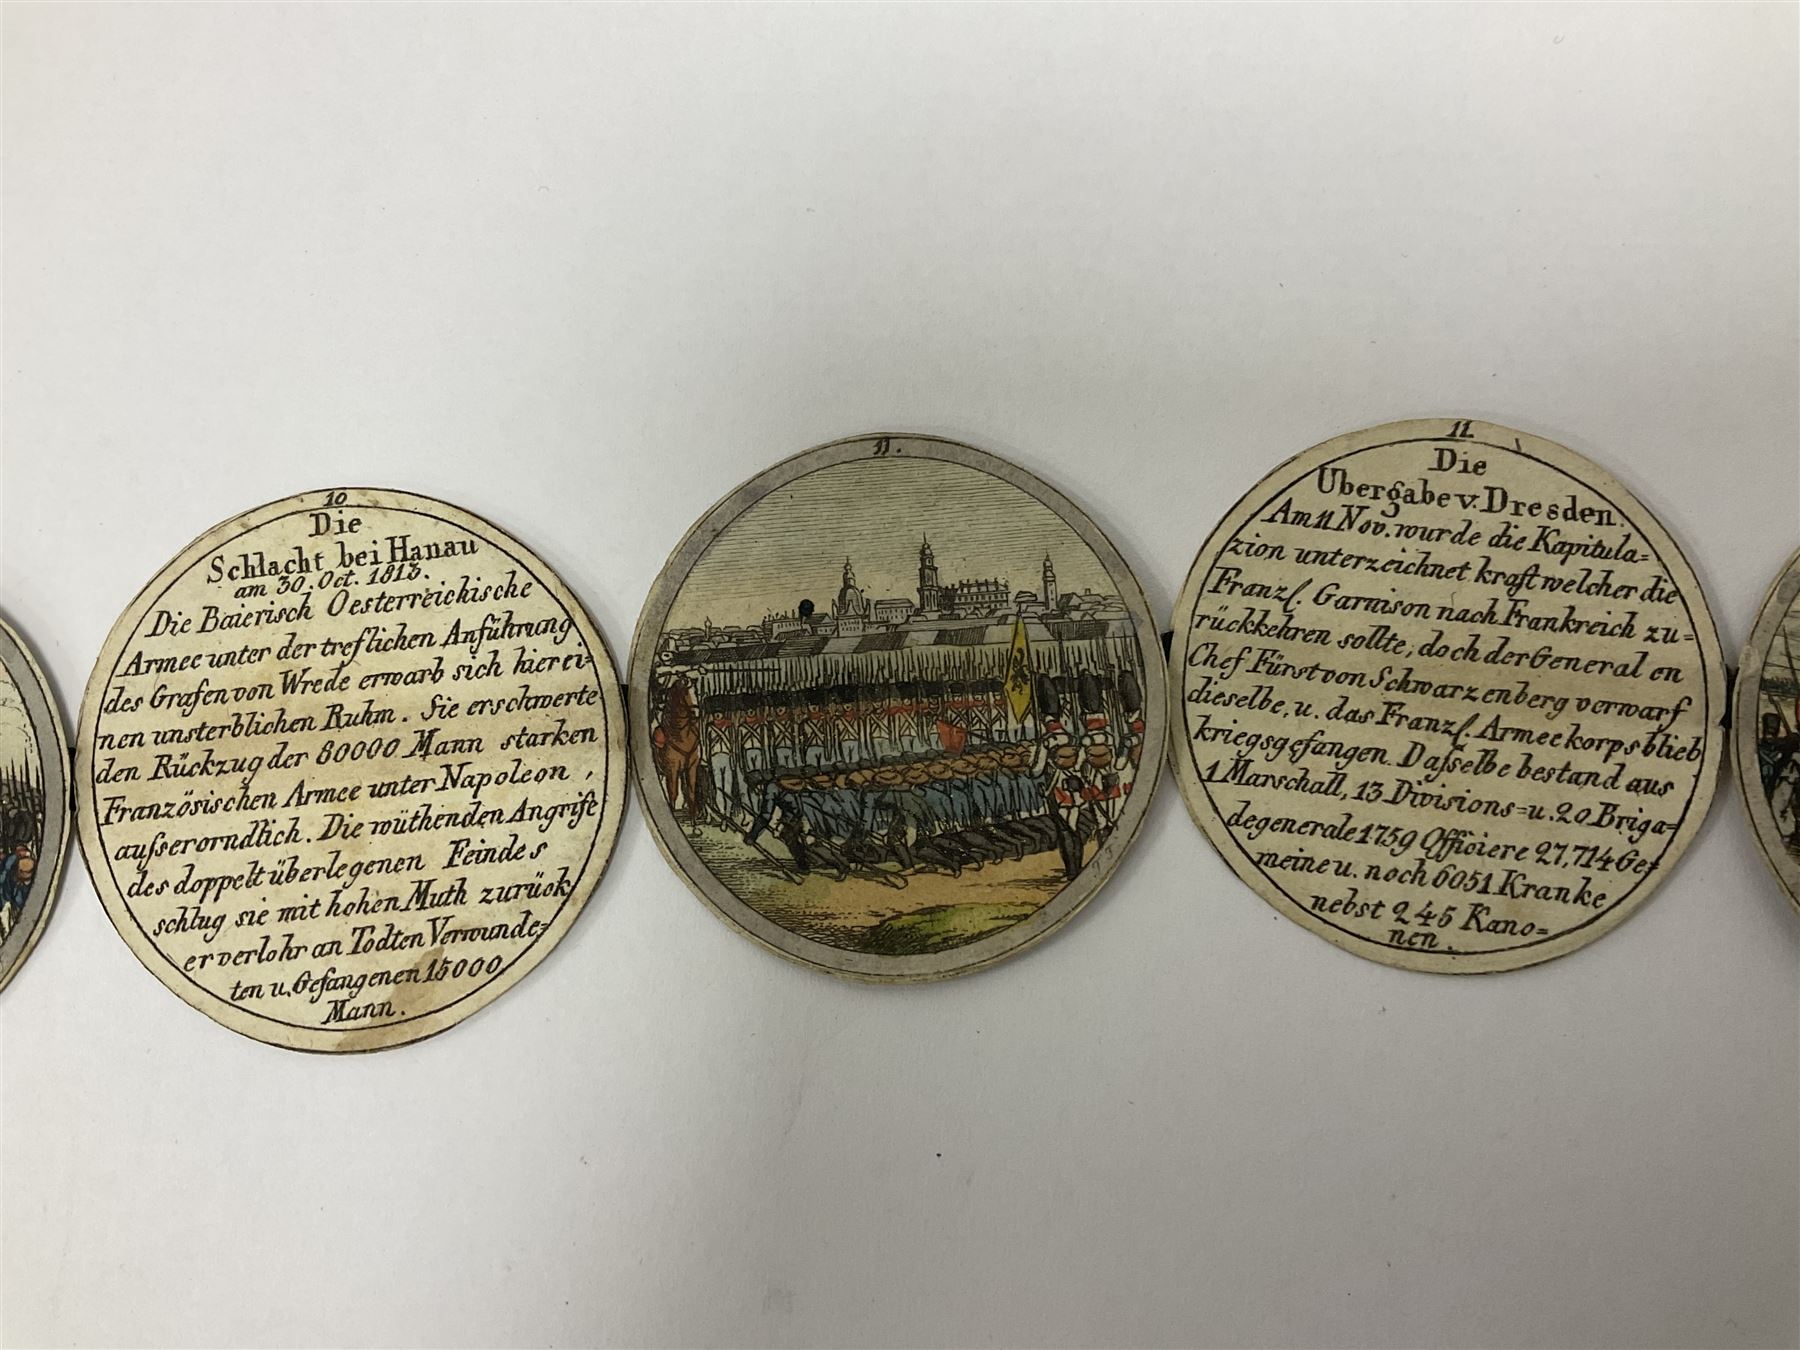 10
Die
Schlacht bei Hanau
am 30. Oct. 1813.
Die Baierisch Oesterreichische
Armee unter der treflichen Anführung
des Grafen von Wrede erwarb sich hier ei=
nen unsterblichen Ruhm. Sie erschwerte
den Rückzug der 80000 Mann starken
Französischen Armee unter Napoleon,
aufserorndlich. Die wüthenden Angrife
des doppelt überlegenen Feindes
schlug sie mit hohen Muth zurück
er verlohr an Todten Verwunde=
ten u. Gefangenen 15000
Mann.
11.
11.
Die
Ubergabe v. Dresden.
Am 11 Nov. wurde die Kapitula=
zion unterzeichnet kraft welcher die
Franzſ. Garnison nach Frankreich zu=
rückkehren sollte, doch der General en
Chef Fürst von Schwarzenberg verwarf
dieselbe, u. das Franzſ. Armeekorps blieb
kriegsgefangen. Daſselbe bestand aus
1 Marschall, 13 Divisions= u. 20 Briga=
degenerale 1759 Officiere 27,714 Ge=
meine u. noch 6051 Kranke
nebst 245 Kano=
nen.